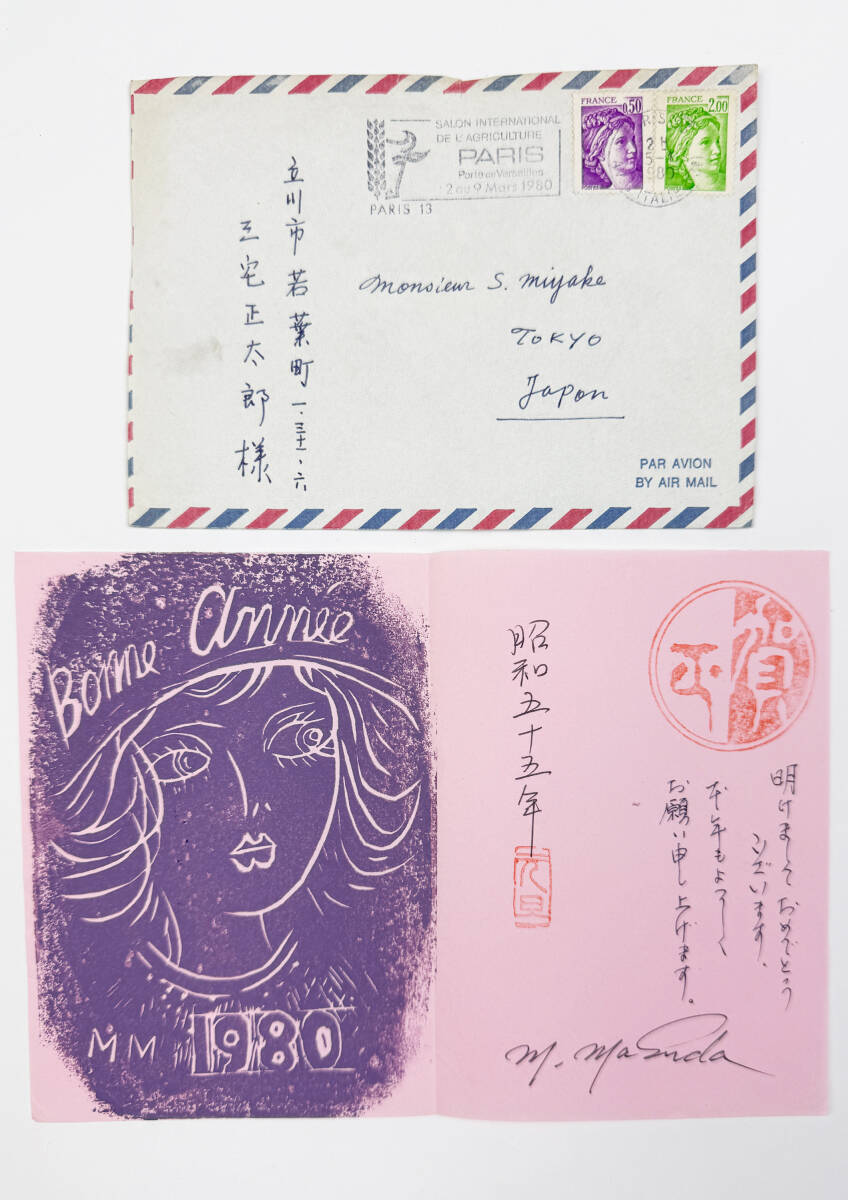 SALON INTERNATIONAL
DE L'AGRICULTURE
PARIS
Porte de Versailles
2 au 9 Mars 1980
PARIS 13
FRANCE
0.50
FRANCE
2.00
1980
立川市若葉町一、三十一、六
三宅正太郎様
Monsieur S. Miyake
TOKYO
Japon
PAR AVION
BY AIR MAIL
Bonne année
MM 1980
賀正
明けましておめでとう
ございます。
本年もよろしく
お願い申し上げます。
昭和五十五年
元旦
M. Masuda